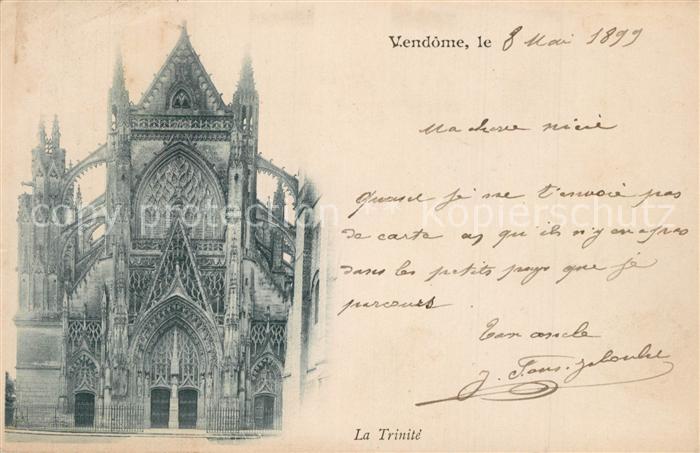 Vendôme, le 8 Mai 1899
Ma chere niéce
Quand je ne t'envoie pas
de carte qu'il n'y en a pas
dans les petits pays que je
parcours
Ton oncle
J.
La Trinité
copy protection Kopierschutz